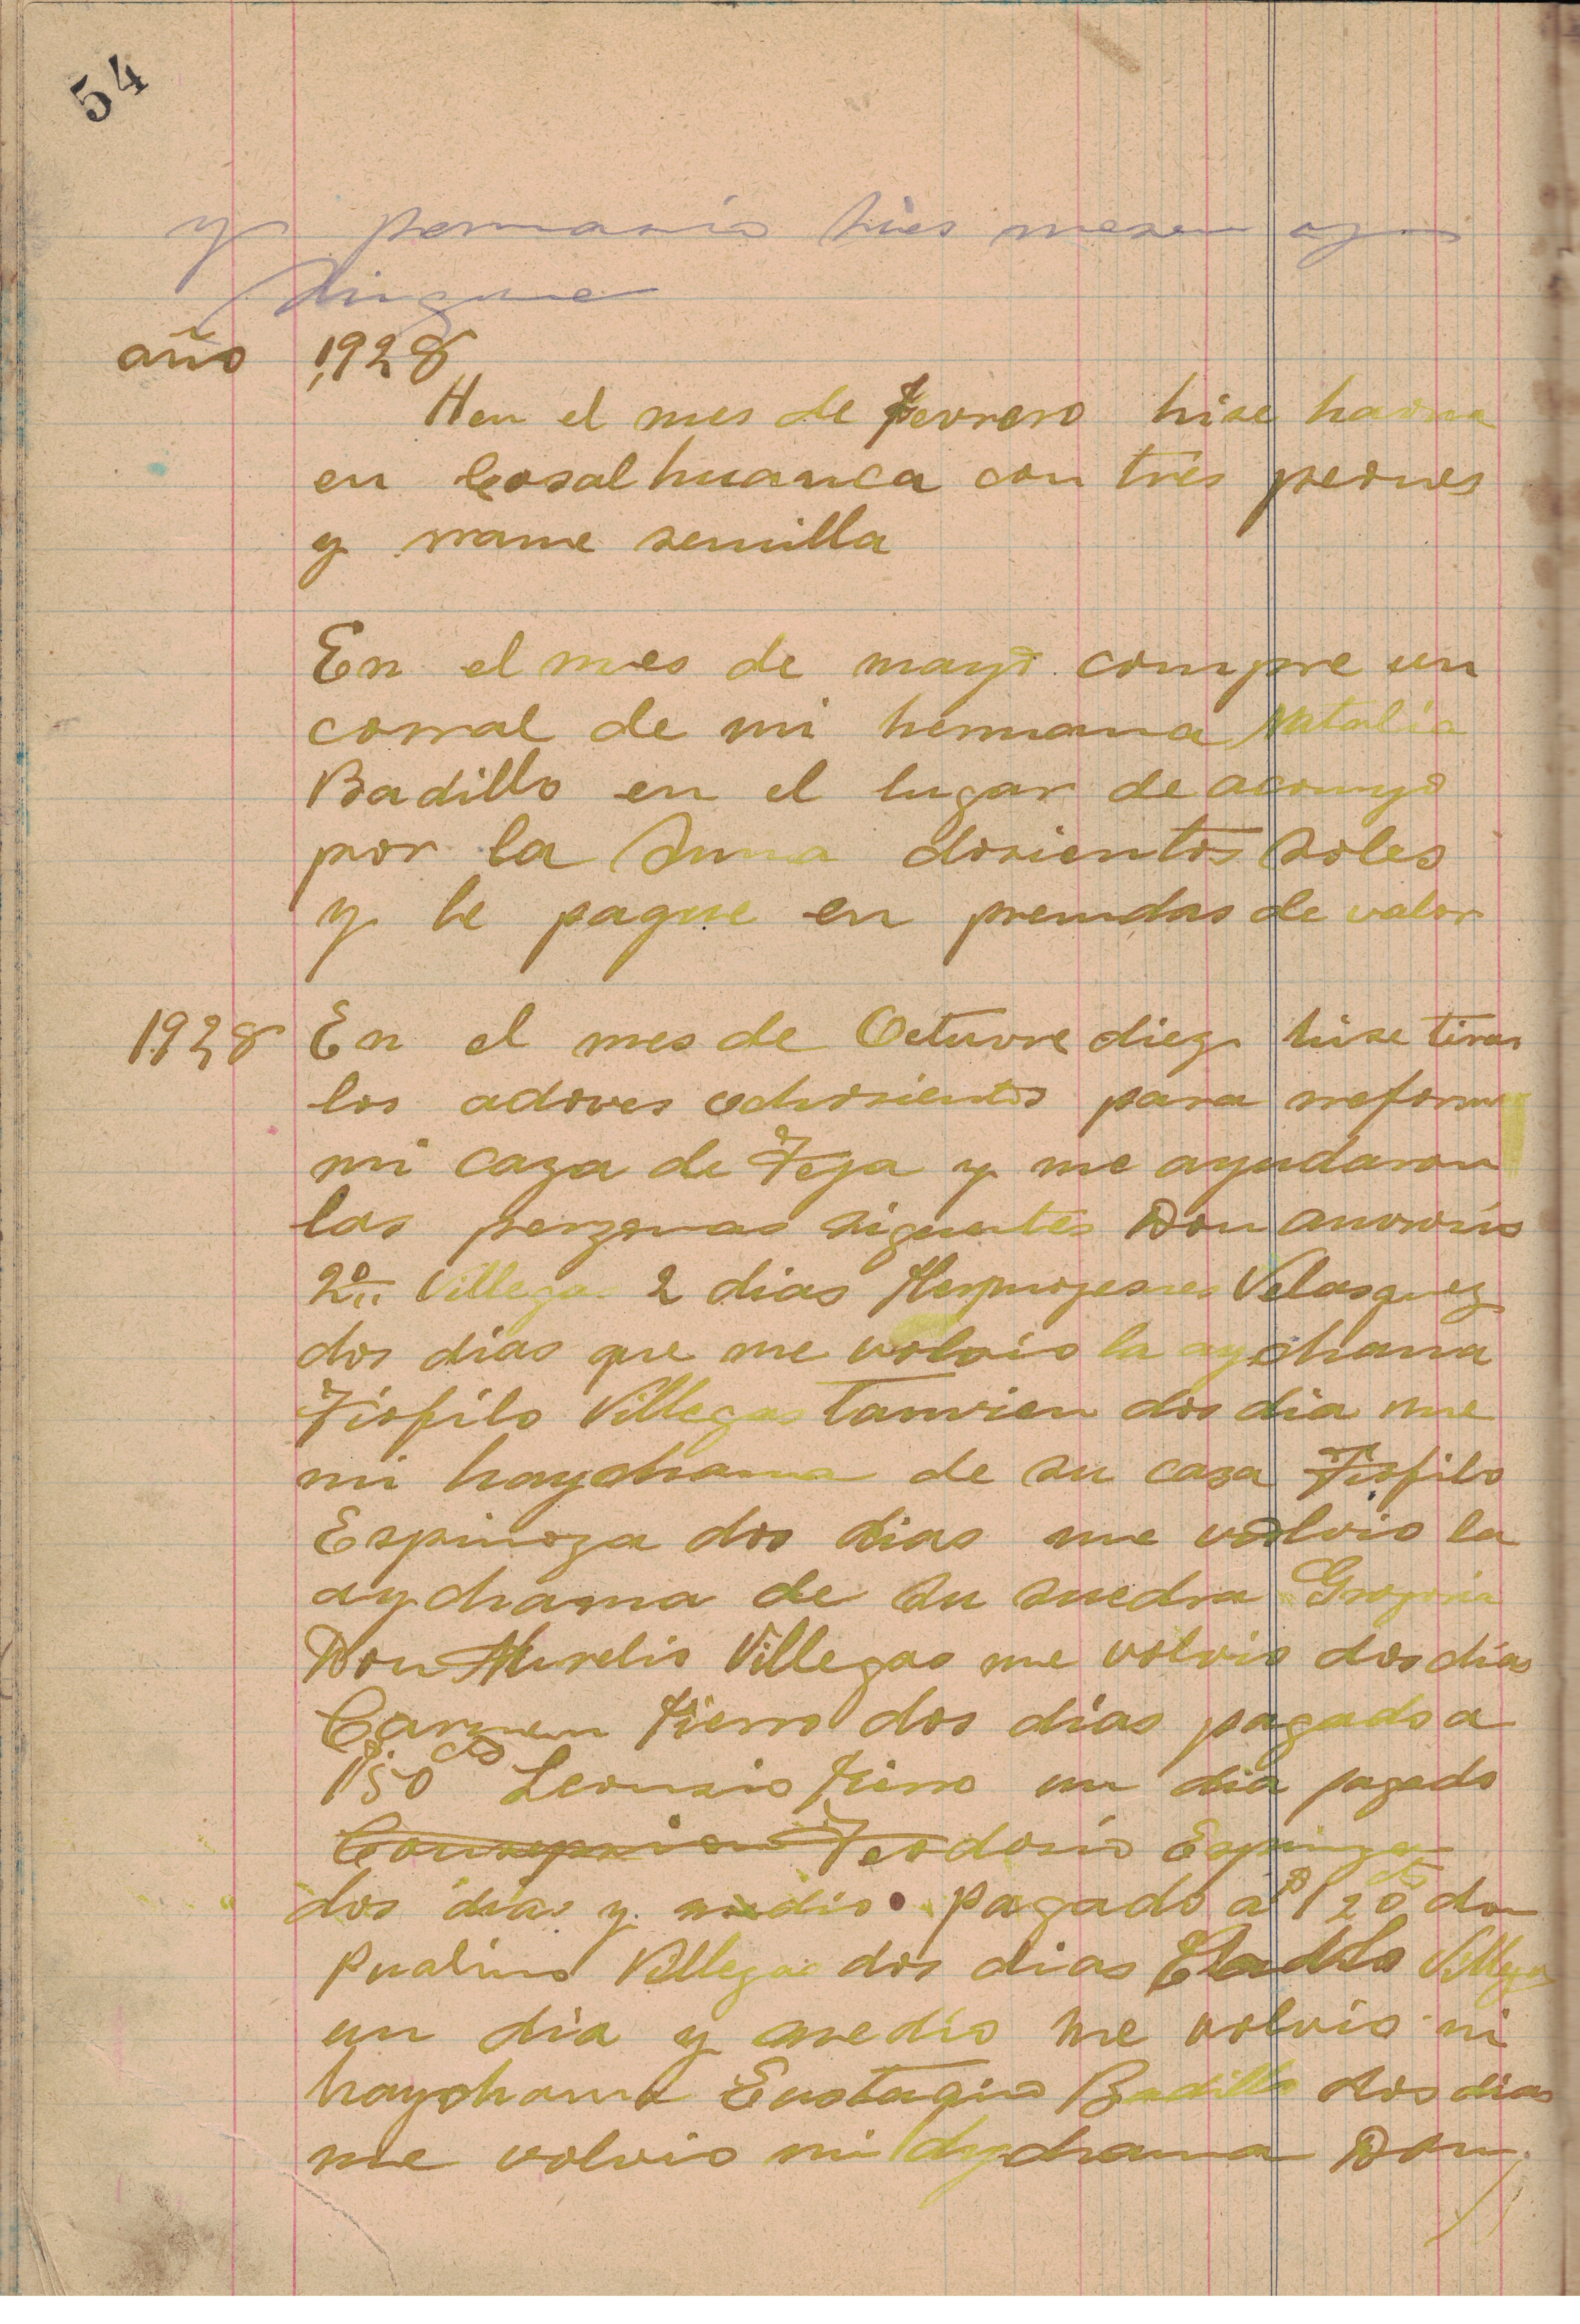 54
y tres meses
año 1,928
Hen el mes de Fevrero hise
en Cosalhuanca con tres peones
y rrame semilla
En el mes de mayo compre un
corral de mi hermana Natalia
Badillo en el lugar de acomyo
por la Suma dosientos soles
y le pague en prendas de valor
1928 En el mes de Octuvre diez hise tirar
los adoves ochosientos para rreformar
mi caza de Teja y me ayudaron
las perzonas siguentes Don
2º Villegas 2 dias Velasquez
dos dias que me volvio la aychama
Tiofilo Villegas Tamvien dos dia me
mi haychama de su caza Tiofilo
Espinoza dos dias me volvio la
aychama de su suedra Grogoria
Don Aurelio Villegas me volvio dos dias
Carmen Fierro dos días pagado a
1,50 Leonsio Fierro un dia pagado
Teodorio Espinoza
dos dias y medio pagado a 1 20 don
Pualino Villegas dos dias Eladio Villegas
un dia y medio me volvio mi
haychama Eustaqio Badillo dos dias
me volvio mi aychama Don